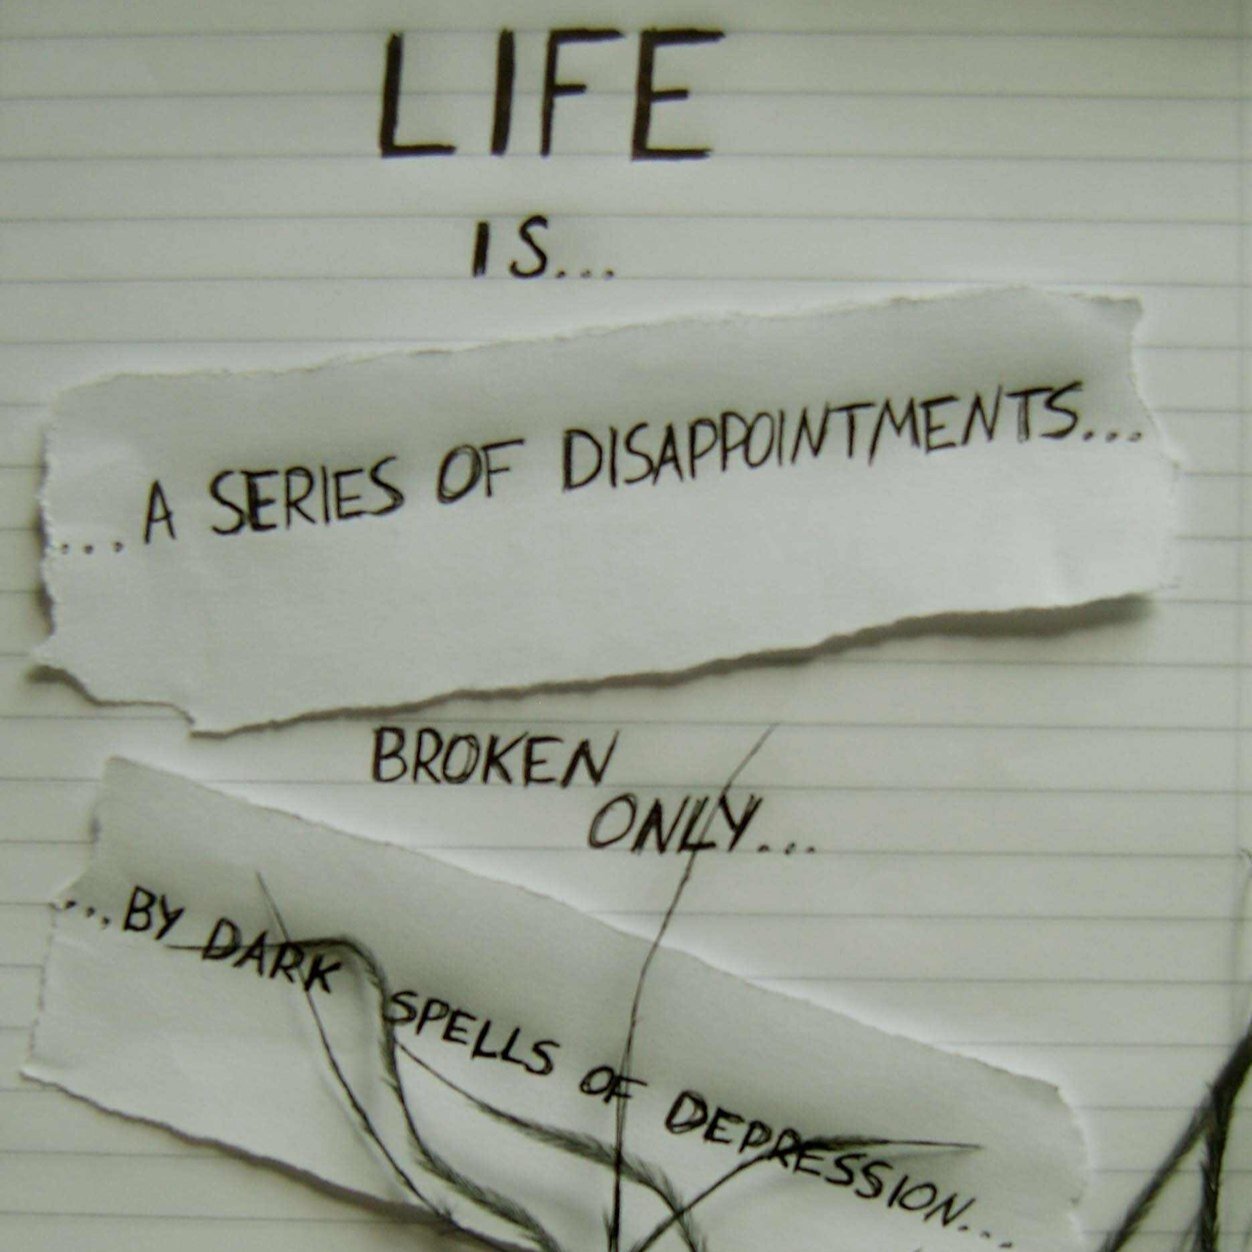 LIFE
IS...
...A SERIES OF DISAPPOINTMENTS...
BROKEN
ONLY...
...BY DARK SPELLS OF DEPRESSION...